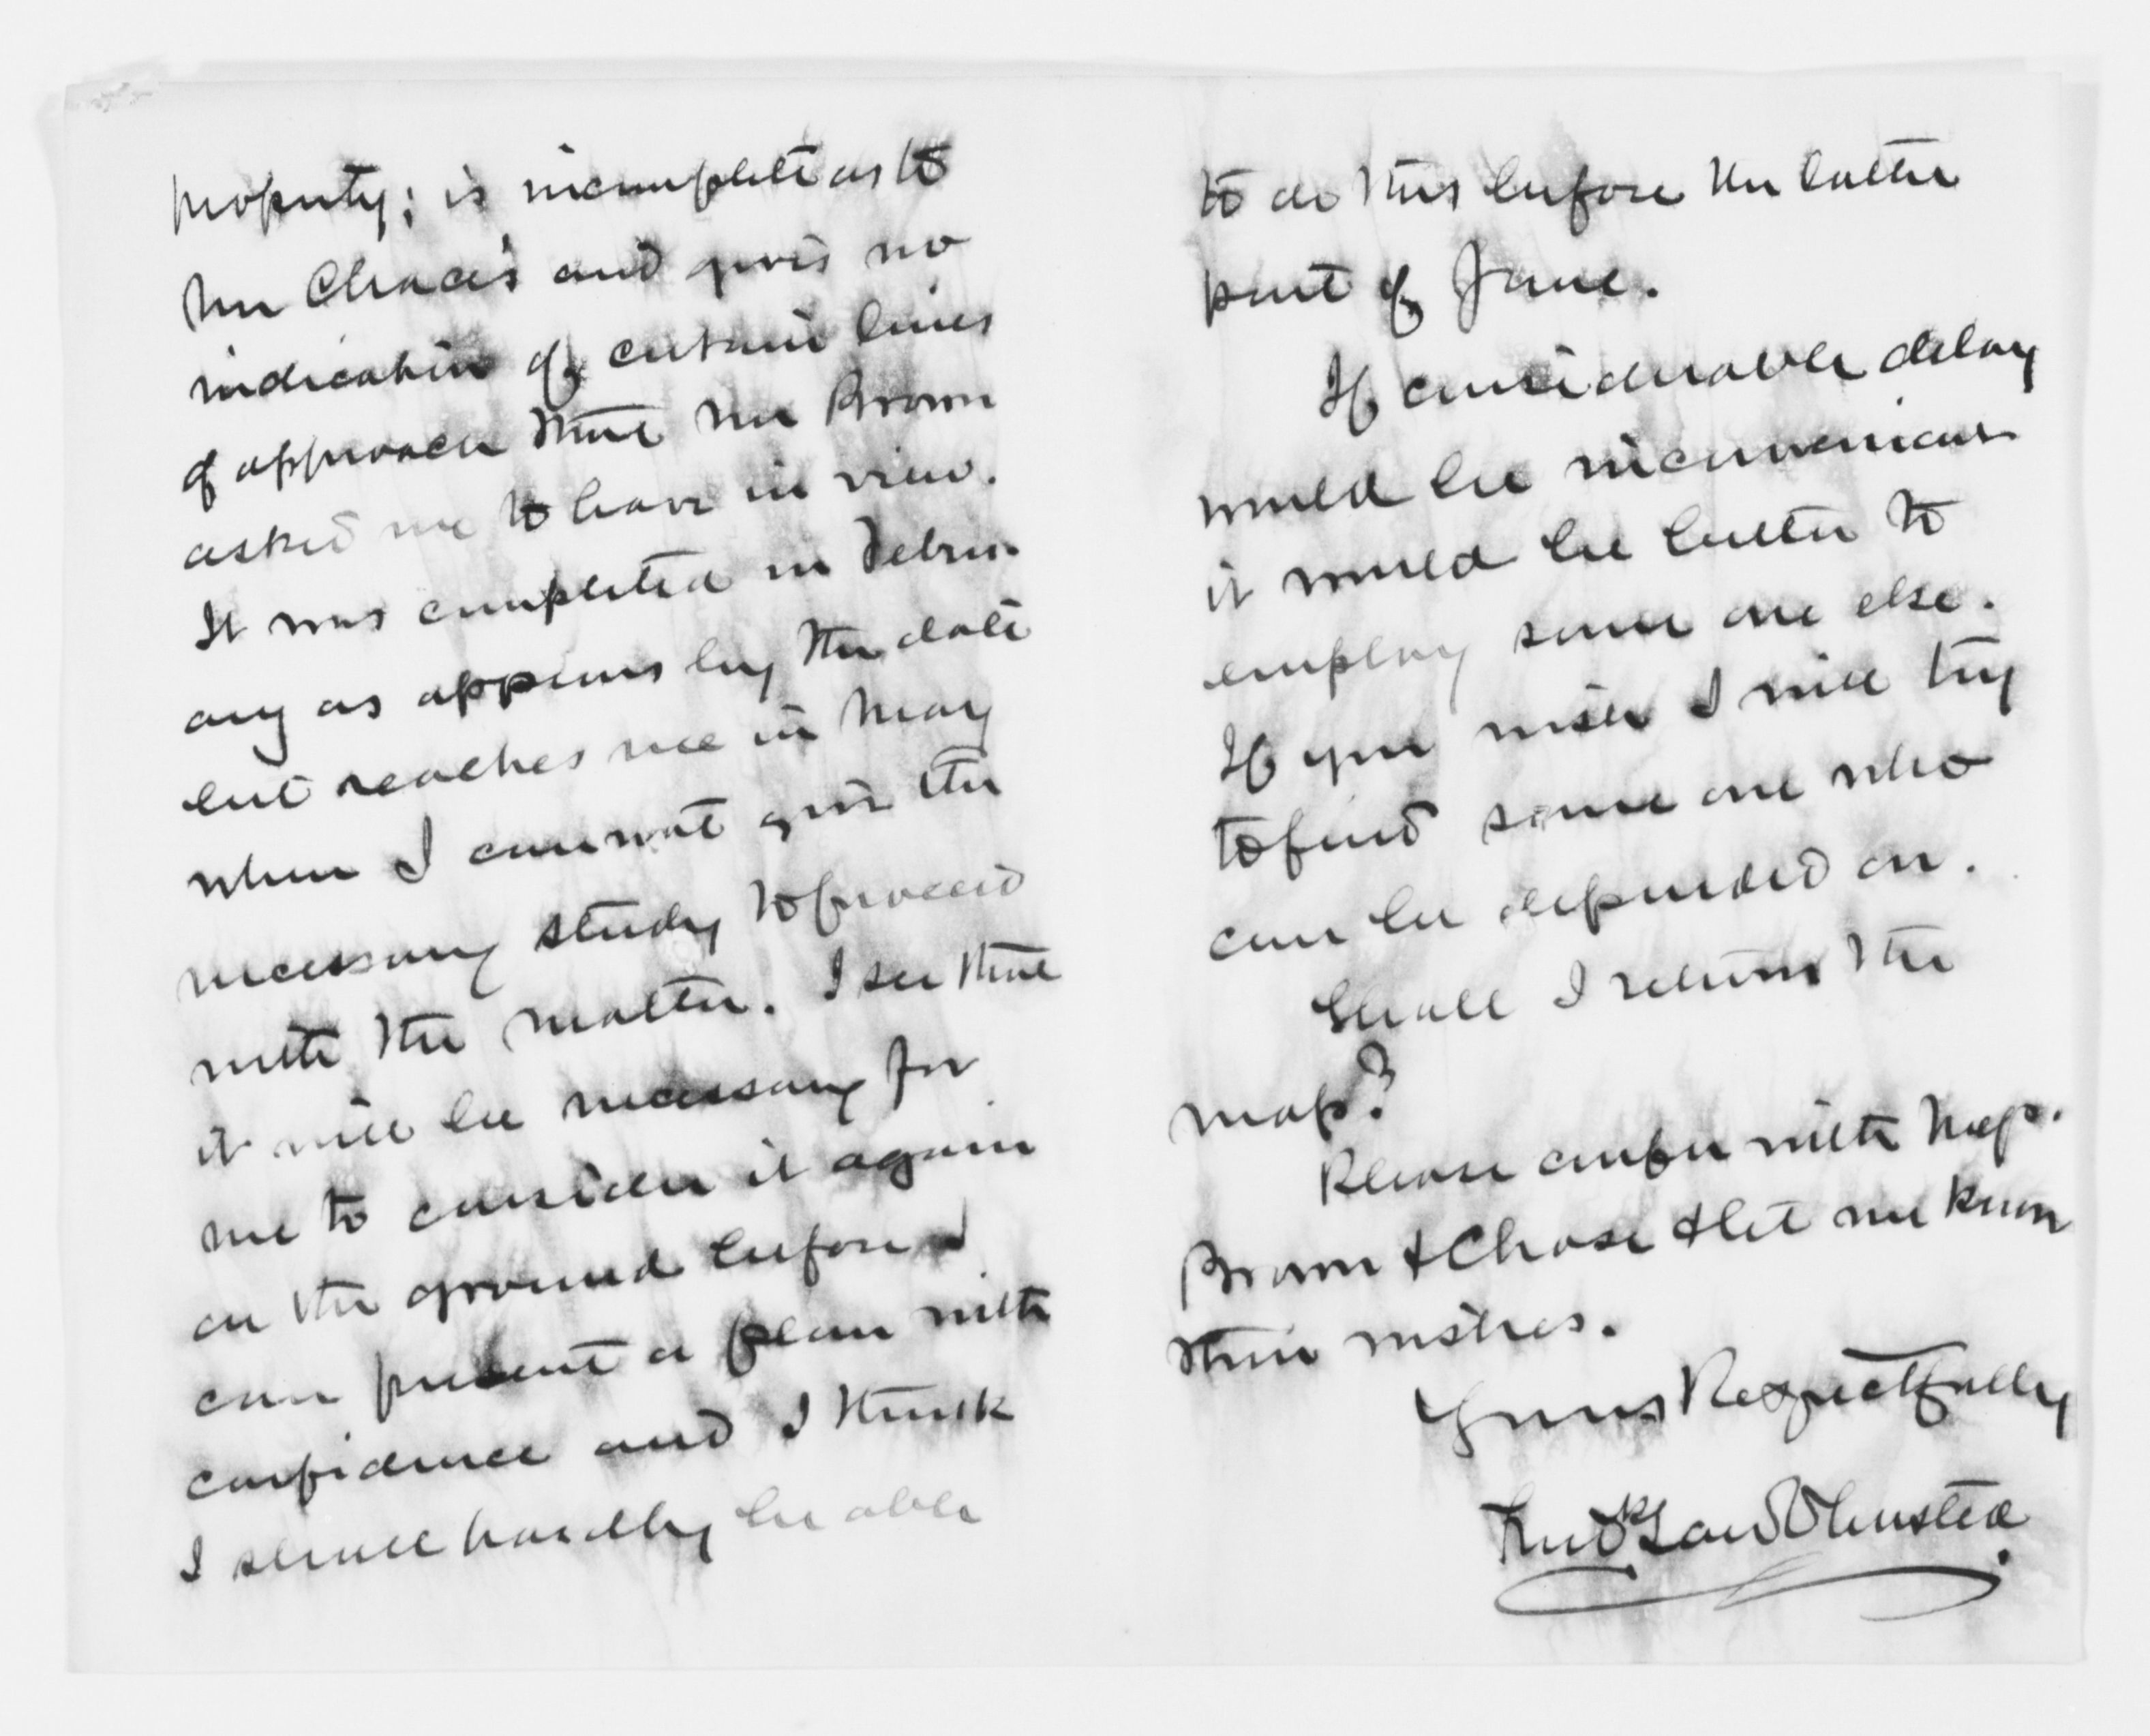 property; is incomplete as to
Mr Chace's and gives no
indication of certain lines
of approach that Mr Brown
asked me to have in view.
It was completed in Febru-
ary as appears by the date
but reaches me in May
when I can not give the
necessary study to proceed
with the matter. I see that
it will be necessary for
me to consider it again
on the ground before I
can present a plan with
confidence and I think
I shall hardly be able
to do this before the latter
part of June.
If considerable delay
would be inconvenient
it would be better to
employ some one else.
If you wish I will try
to find some one who
can be depended on.
Shall I return the
map?
Please confer with
Brown & Chase & let me know
their wishes.
Yours Respectfully
Fredk Law Olmsted.